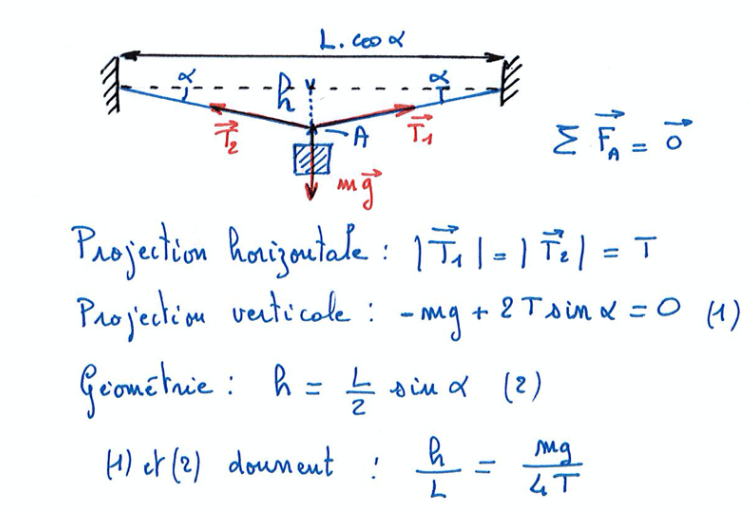 L. cos α
α h α
T⃗₂ A T⃗₁
Σ F⃗_A = 0⃗
mg⃗
Projection horizontale : |T⃗₁| = |T⃗₂| = T
Projection verticale : -mg + 2T sin α = 0 (1)
Géométrie : h = L/2 sin α (2)
(1) et (2) donnent : h/L = mg/4T